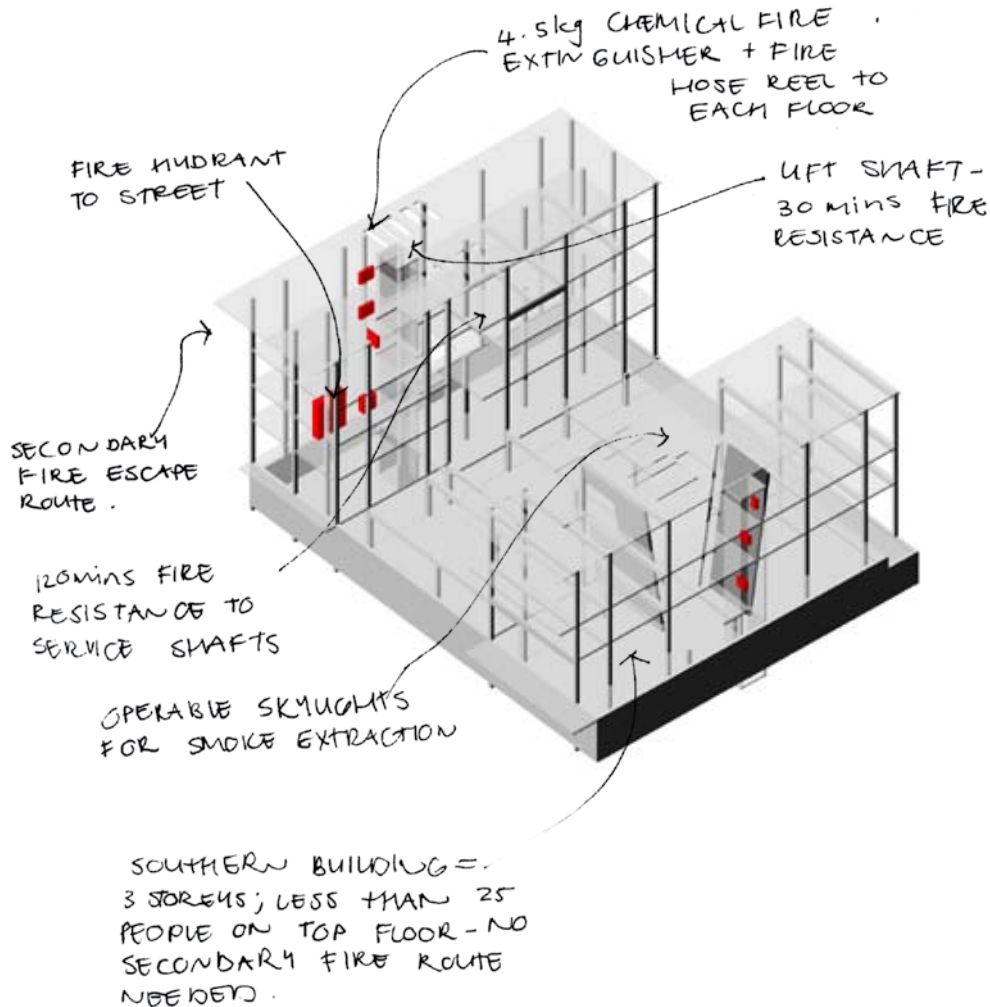 4.5kg CHEMICAL FIRE
EXTINGUISHER + FIRE
HOSE REEL TO
EACH FLOOR
FIRE HYDRANT
TO STREET
LIFT SHAFT -
30 mins FIRE
RESISTANCE
SECONDARY
FIRE ESCAPE
ROUTE.
120mins FIRE
RESISTANCE TO
SERVICE SHAFTS
OPERABLE SKYLIGHTS
FOR SMOKE EXTRACTION
SOUTHERN BUILDING =
3 STOREYS; LESS THAN 25
PEOPLE ON TOP FLOOR - NO
SECONDARY FIRE ROUTE
NEEDED.